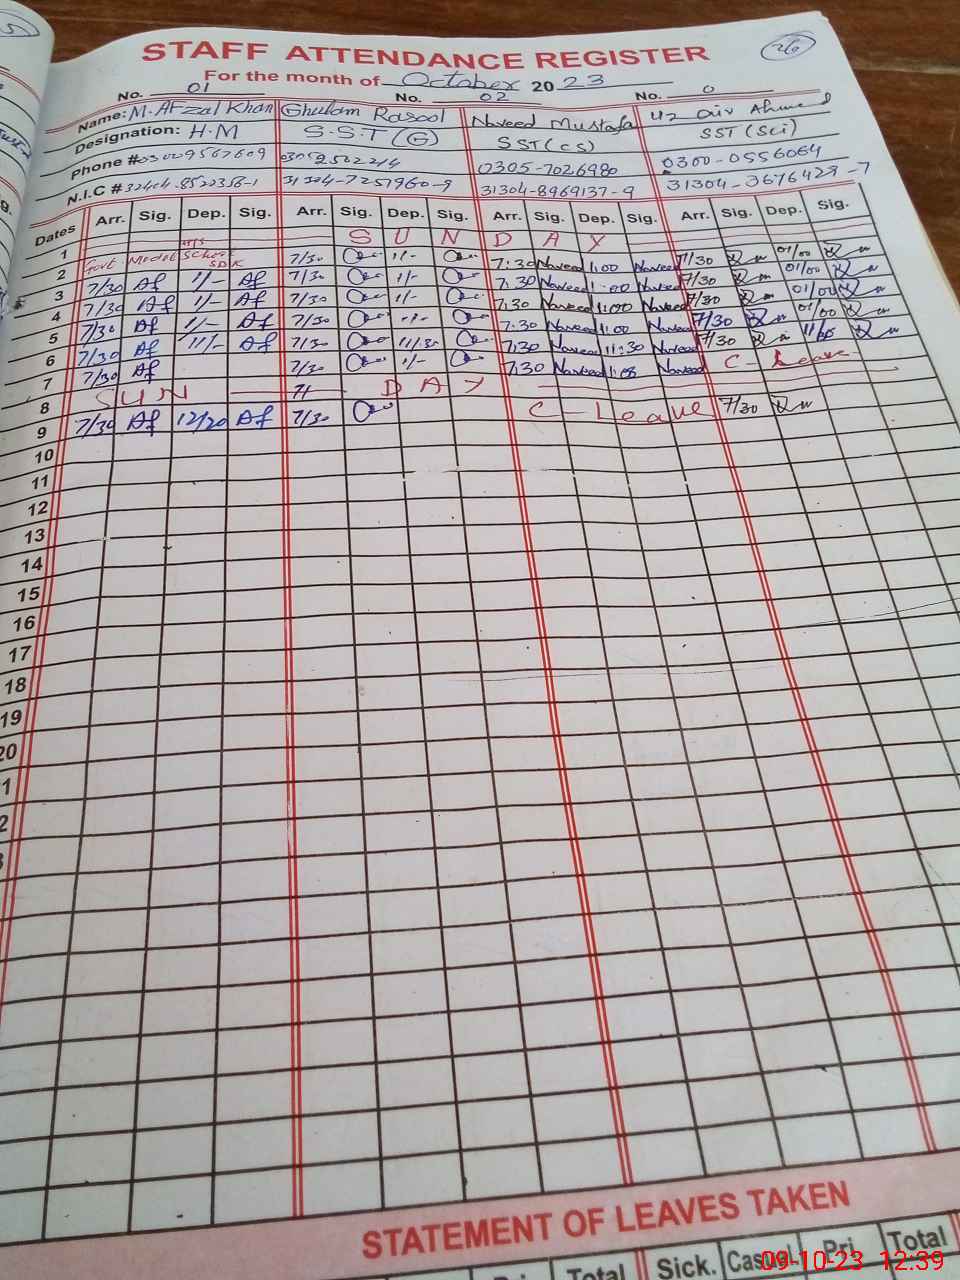 STAFF ATTENDANCE REGISTER
26
For the month of October 2023
No. 01 No. 02 No. 0
Name: M. AFzal Khan Ghulam Rasool Naveed Mustafa Uzair Ahmed
Designation: H.M S.S.T (G) SST (CS) SST (Sci)
Phone # 0305-7026980 0300-0556064
N.I.C # 31304-7257960-9 31304-8969137-9 31304-3676429-7
Dates Arr. Sig. Dep. Sig. Arr. Sig. Dep. Sig. Arr. Sig. Dep. Sig. Arr. Sig. Dep. Sig.
1 S U N D A Y
2 Govt. Model School 7/30 1/- 7:30 Naveed 1:00 Naveed 7/30 01/00
3 7/30 Af 1/- Af 7/30 1/- 7:30 Naveed 1:00 Naveed 7/30 01/00
4 7/30 Af 1/- Af 7/30 1/- 7:30 Naveed 1:00 Naveed 7/30 01/00
5 7/30 Af 1/- Af 7/30 1/- 7:30 Naveed 1:00 Naveed 7/30 01/00
6 7/30 Af 11/- Af 7/30 11/30 7:30 Naveed 11:30 Naveed 7/30
7 7/30 Af 7/30 1/- 7:30 Naveed Naveed C-Leave
8 SUN DAY
9 7/30 Af 12/20 Af 7/30 C-Leave 7/30
10
11
12
13
14
15
16
17
18
19
20
STATEMENT OF LEAVES TAKEN
Total Sick. Casual. Pri. Total
09-10-23 12:39